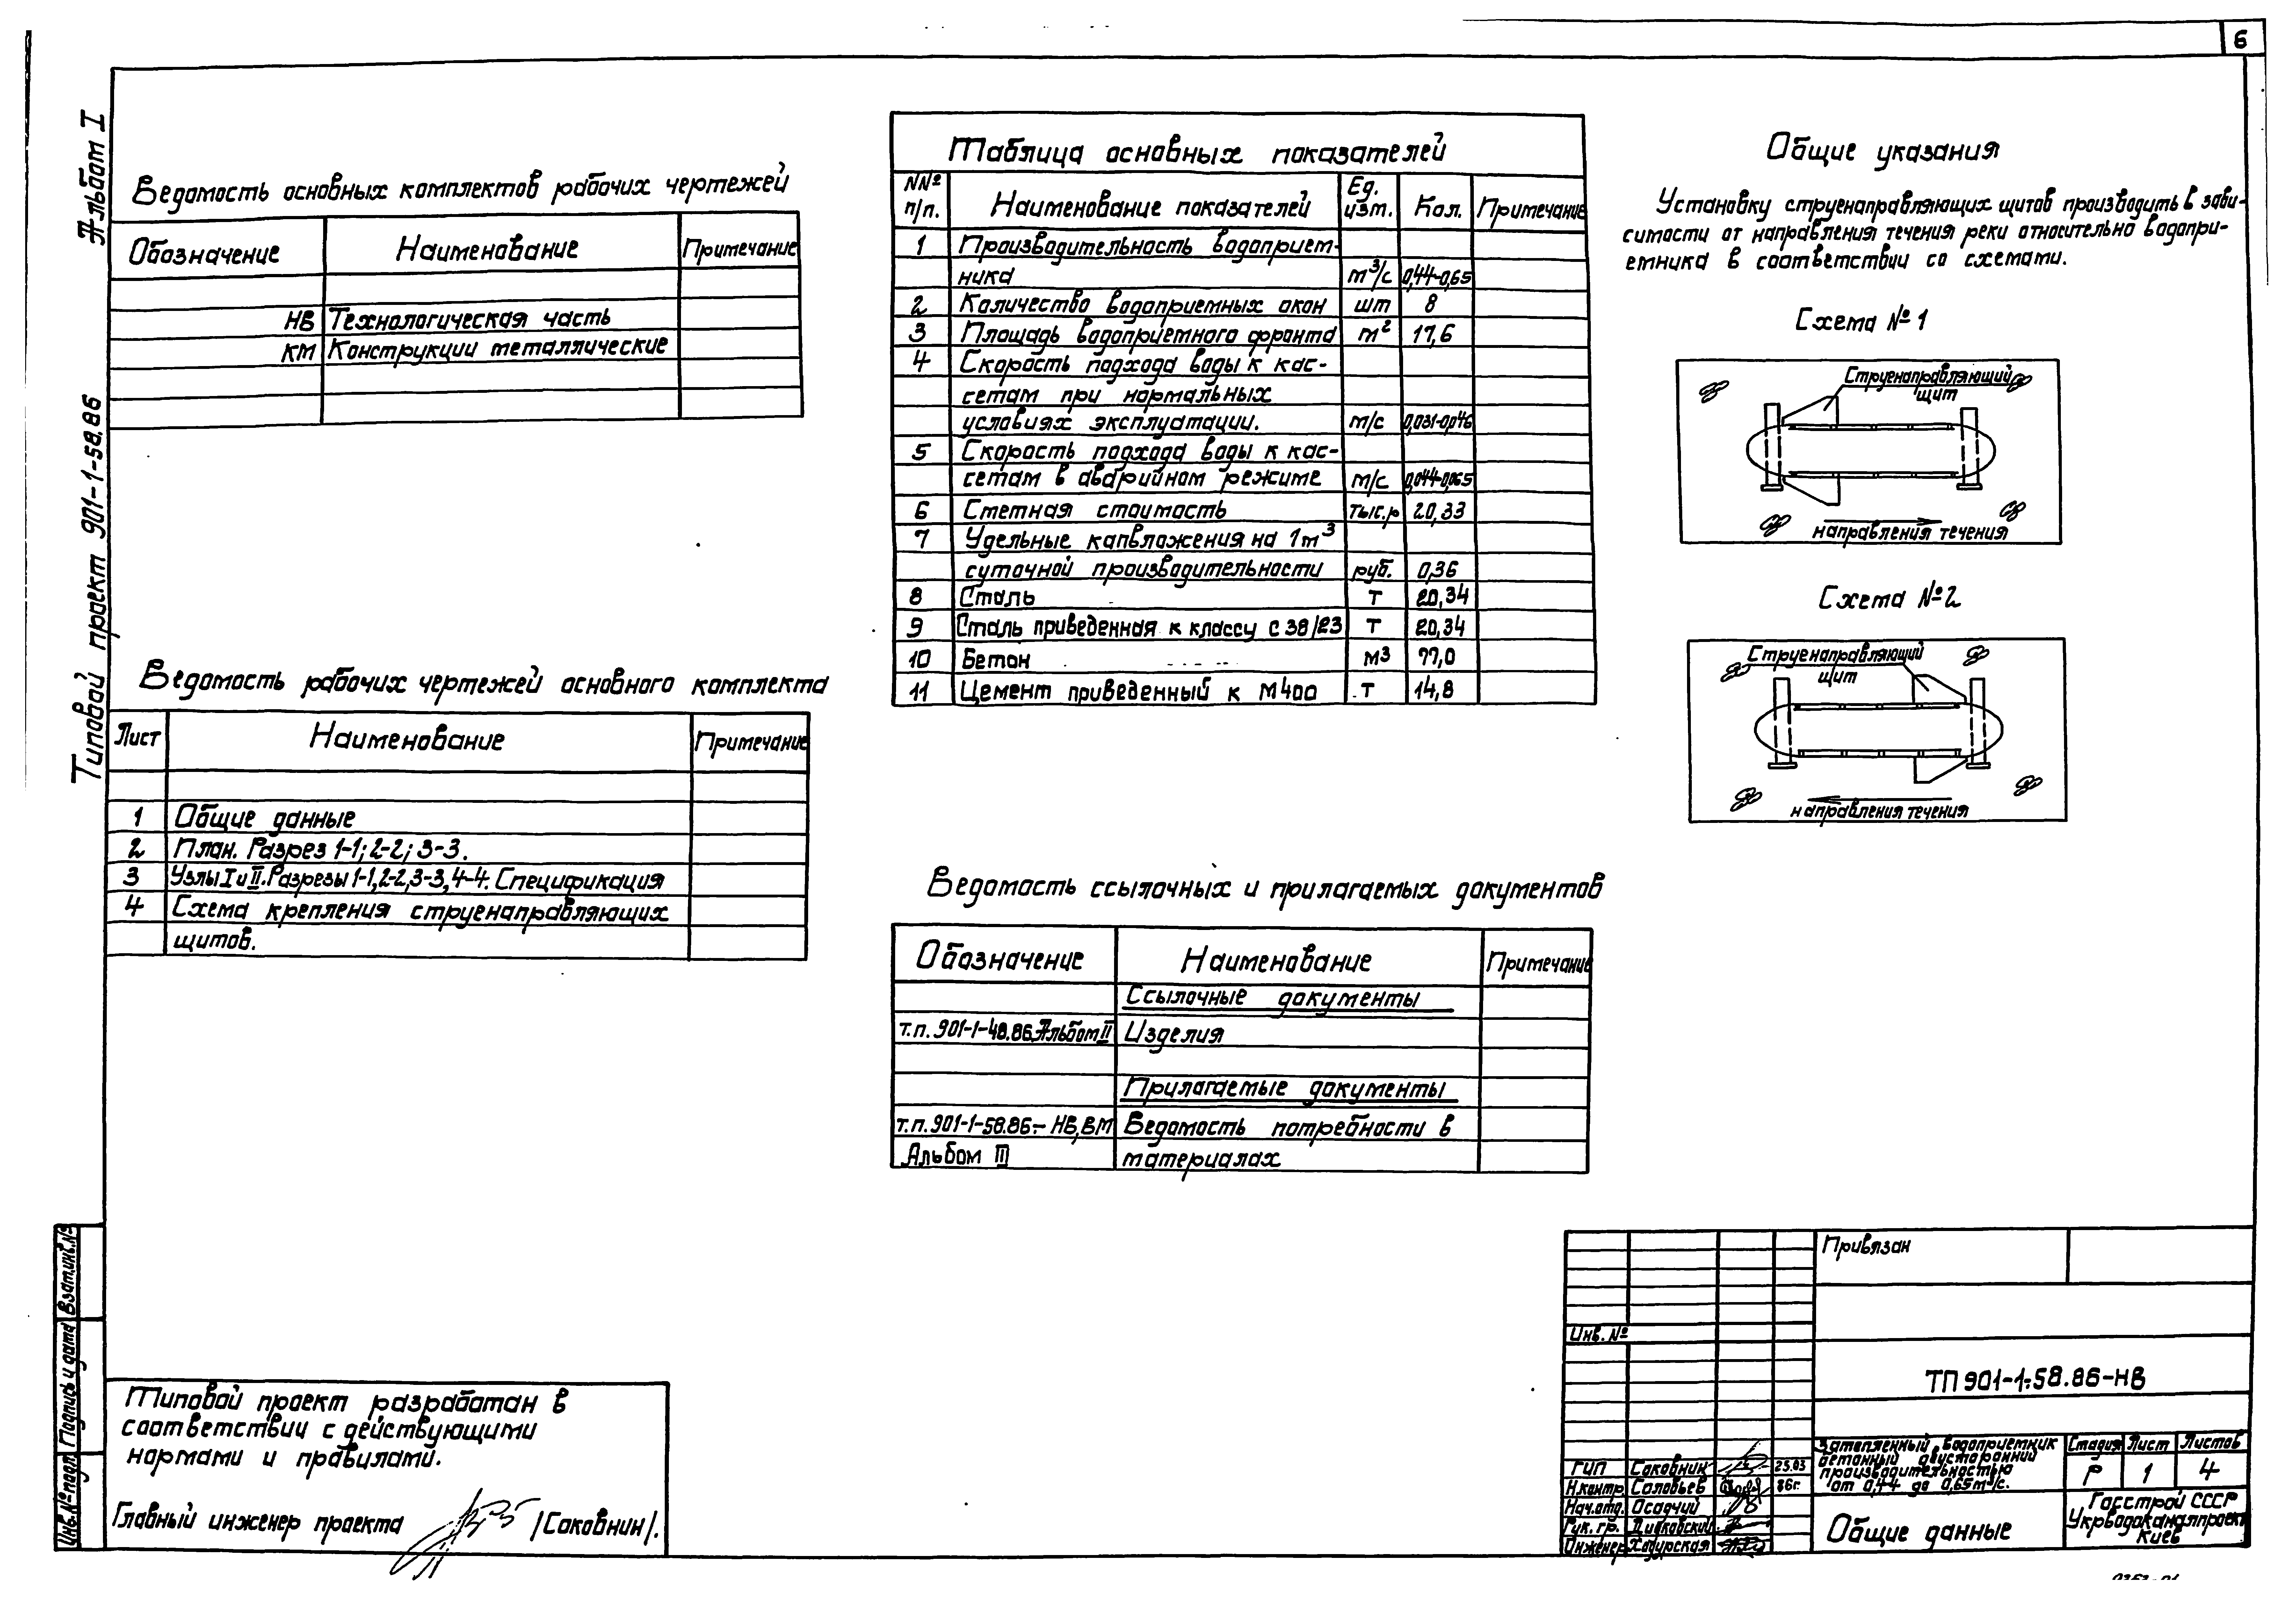 6
Альбом I
Типовой проект 901-1-58.86
Ведомость основных комплектов рабочих чертежей
Обозначение Наименование Примечание
НВ Технологическая часть
КМ Конструкции металлические
Ведомость рабочих чертежей основного комплекта
Лист Наименование Примечание
1 Общие данные
2 План. Разрез 1-1; 2-2; 3-3.
3 Узлы I и II. Разрезы 1-1, 2-2, 3-3, 4-4. Спецификация
4 Схема крепления струенаправляющих
щитов.
Таблица основных показателей
NNº п/п. Наименование показателей Ед. изм. Кол. Примечание
1 Производительность водоприем-
ника м³/с 0,44-0,65
2 Количество водоприемных окон шт 8
3 Площадь водоприемного фронта м² 17,6
4 Скорость подхода воды к кас-
сетам при нормальных
условиях эксплуатации. м/с 0,031-0,046
5 Скорость подхода воды к кас-
сетам в аварийном режиме м/с 0,044-0,065
6 Сметная стоимость тыс.р 20,33
7 Удельные капвложения на 1м³
суточной производительности руб. 0,36
8 Сталь т 20,34
9 Сталь приведенная к классу С 38/23 т 20,34
10 Бетон м³ 77,0
11 Цемент приведенный к М400 т 14,8
Ведомость ссылочных и прилагаемых документов
Обозначение Наименование Примечание
Ссылочные документы
т.п. 901-1-48.86 Альбом II Изделия
Прилагаемые документы
т.п. 901-1-58.86.- НВ, ВМ Ведомость потребности в
Альбом III материалах
Общие указания
Установку струенаправляющих щитов производить в зави-
симости от направления течения реки относительно водопри-
емника в соответствии со схемами.
Схема №1
Струенаправляющий
щит
направления течения
Схема №2
Струенаправляющий
щит
направления течения
Взам.инв.№
Подпись и дата
Инв.№подл.
Типовой проект разработан в
соответствии с действующими
нормами и правилами.
Главный инженер проекта /Соковнин/.
Привязан
Инв. №
ТП 901-1-58.86-НВ
ГИП Соковнин 25.03
Н.контр. Соловьев 86г.
Нач.отд. Осадчий
Рук. гр.
Инженер
Затопленный водоприемник
бетонный двусторонний
производительностью
от 0,44 до 0,65м³/с.
Стадия Лист Листов
Р 1 4
Общие данные
Госстрой СССР
Укрводоканалпроект
Киев